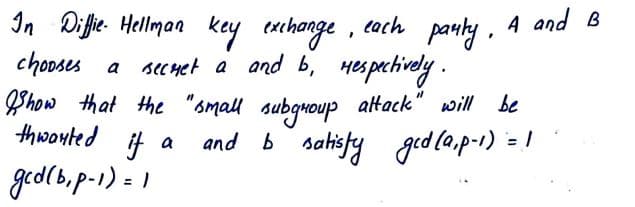 In Diffie- Hellman key exchange , each party , A and B
chooses a secret a and b, respectively .
Show that the "small subgroup attack" will be
thwarted if a and b satisfy gcd (a,p-1) = 1
gcd(b,p-1) = 1